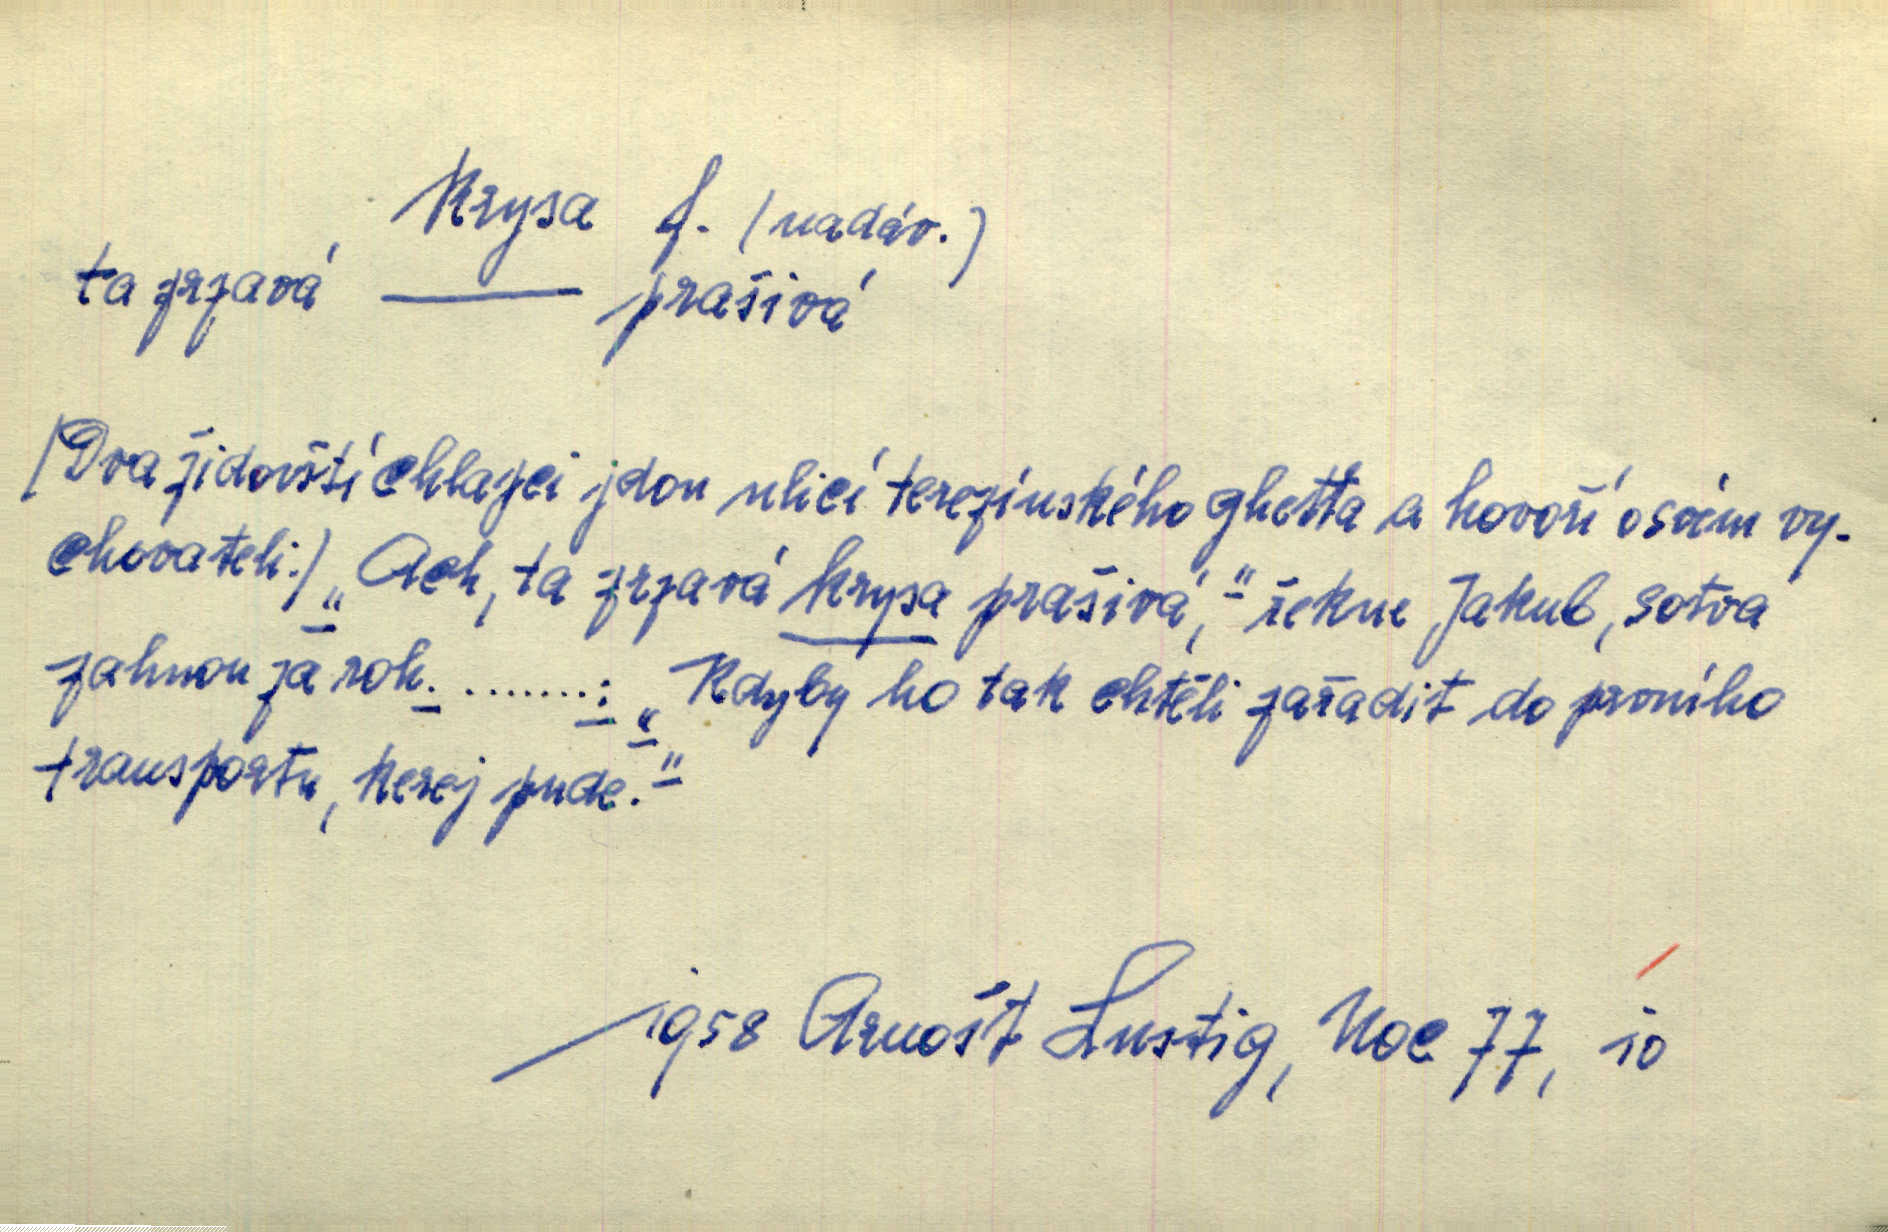 krysa f. (nadáv.)
ta zrzavá ——— prašivá
(Dva židovští chlapci jdou ulicí terezínského ghetta a hovoří o svém vy-
chovateli.) „Ach, ta zrzavá krysa prašivá,“ řekne Jakub, sotva
zahnou za roh. ........: „Kdyby ho tak chtěli zařadit do prvního
transportu, kerej pude.“
1958 Arnošt Lustig, Noc 77, io